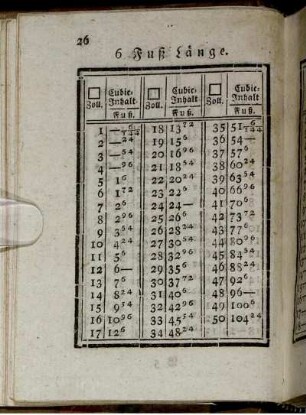 26
6 Fuß Länge.
Zoll. Cubic-Inhalt Fuß. Zoll. Cubic-Inhalt Fuß. Zoll. Cubic-Inhalt Fuß.
1 — 6/144 18 13 72 35 51 6/144
2 — 24 19 15 6 36 54 —
3 — 54 20 16 96 37 57 6
4 — 96 21 18 54 38 60 24
5 1 6 22 20 24 39 63 54
6 1 72 23 22 6 40 66 96
7 2 6 24 24 — 41 70 6
8 2 96 25 26 6 42 73 72
9 3 54 26 28 24 43 77 6
10 4 24 27 30 54 44 80 96
11 5 6 28 32 96 45 84 54
12 6 — 29 35 6 46 88 24
13 7 6 30 37 72 47 92 6
14 8 24 31 40 6 48 96 —
15 9 54 32 42 96 49 100 6
16 10 96 33 45 54 50 104 24
17 12 6 34 48 24